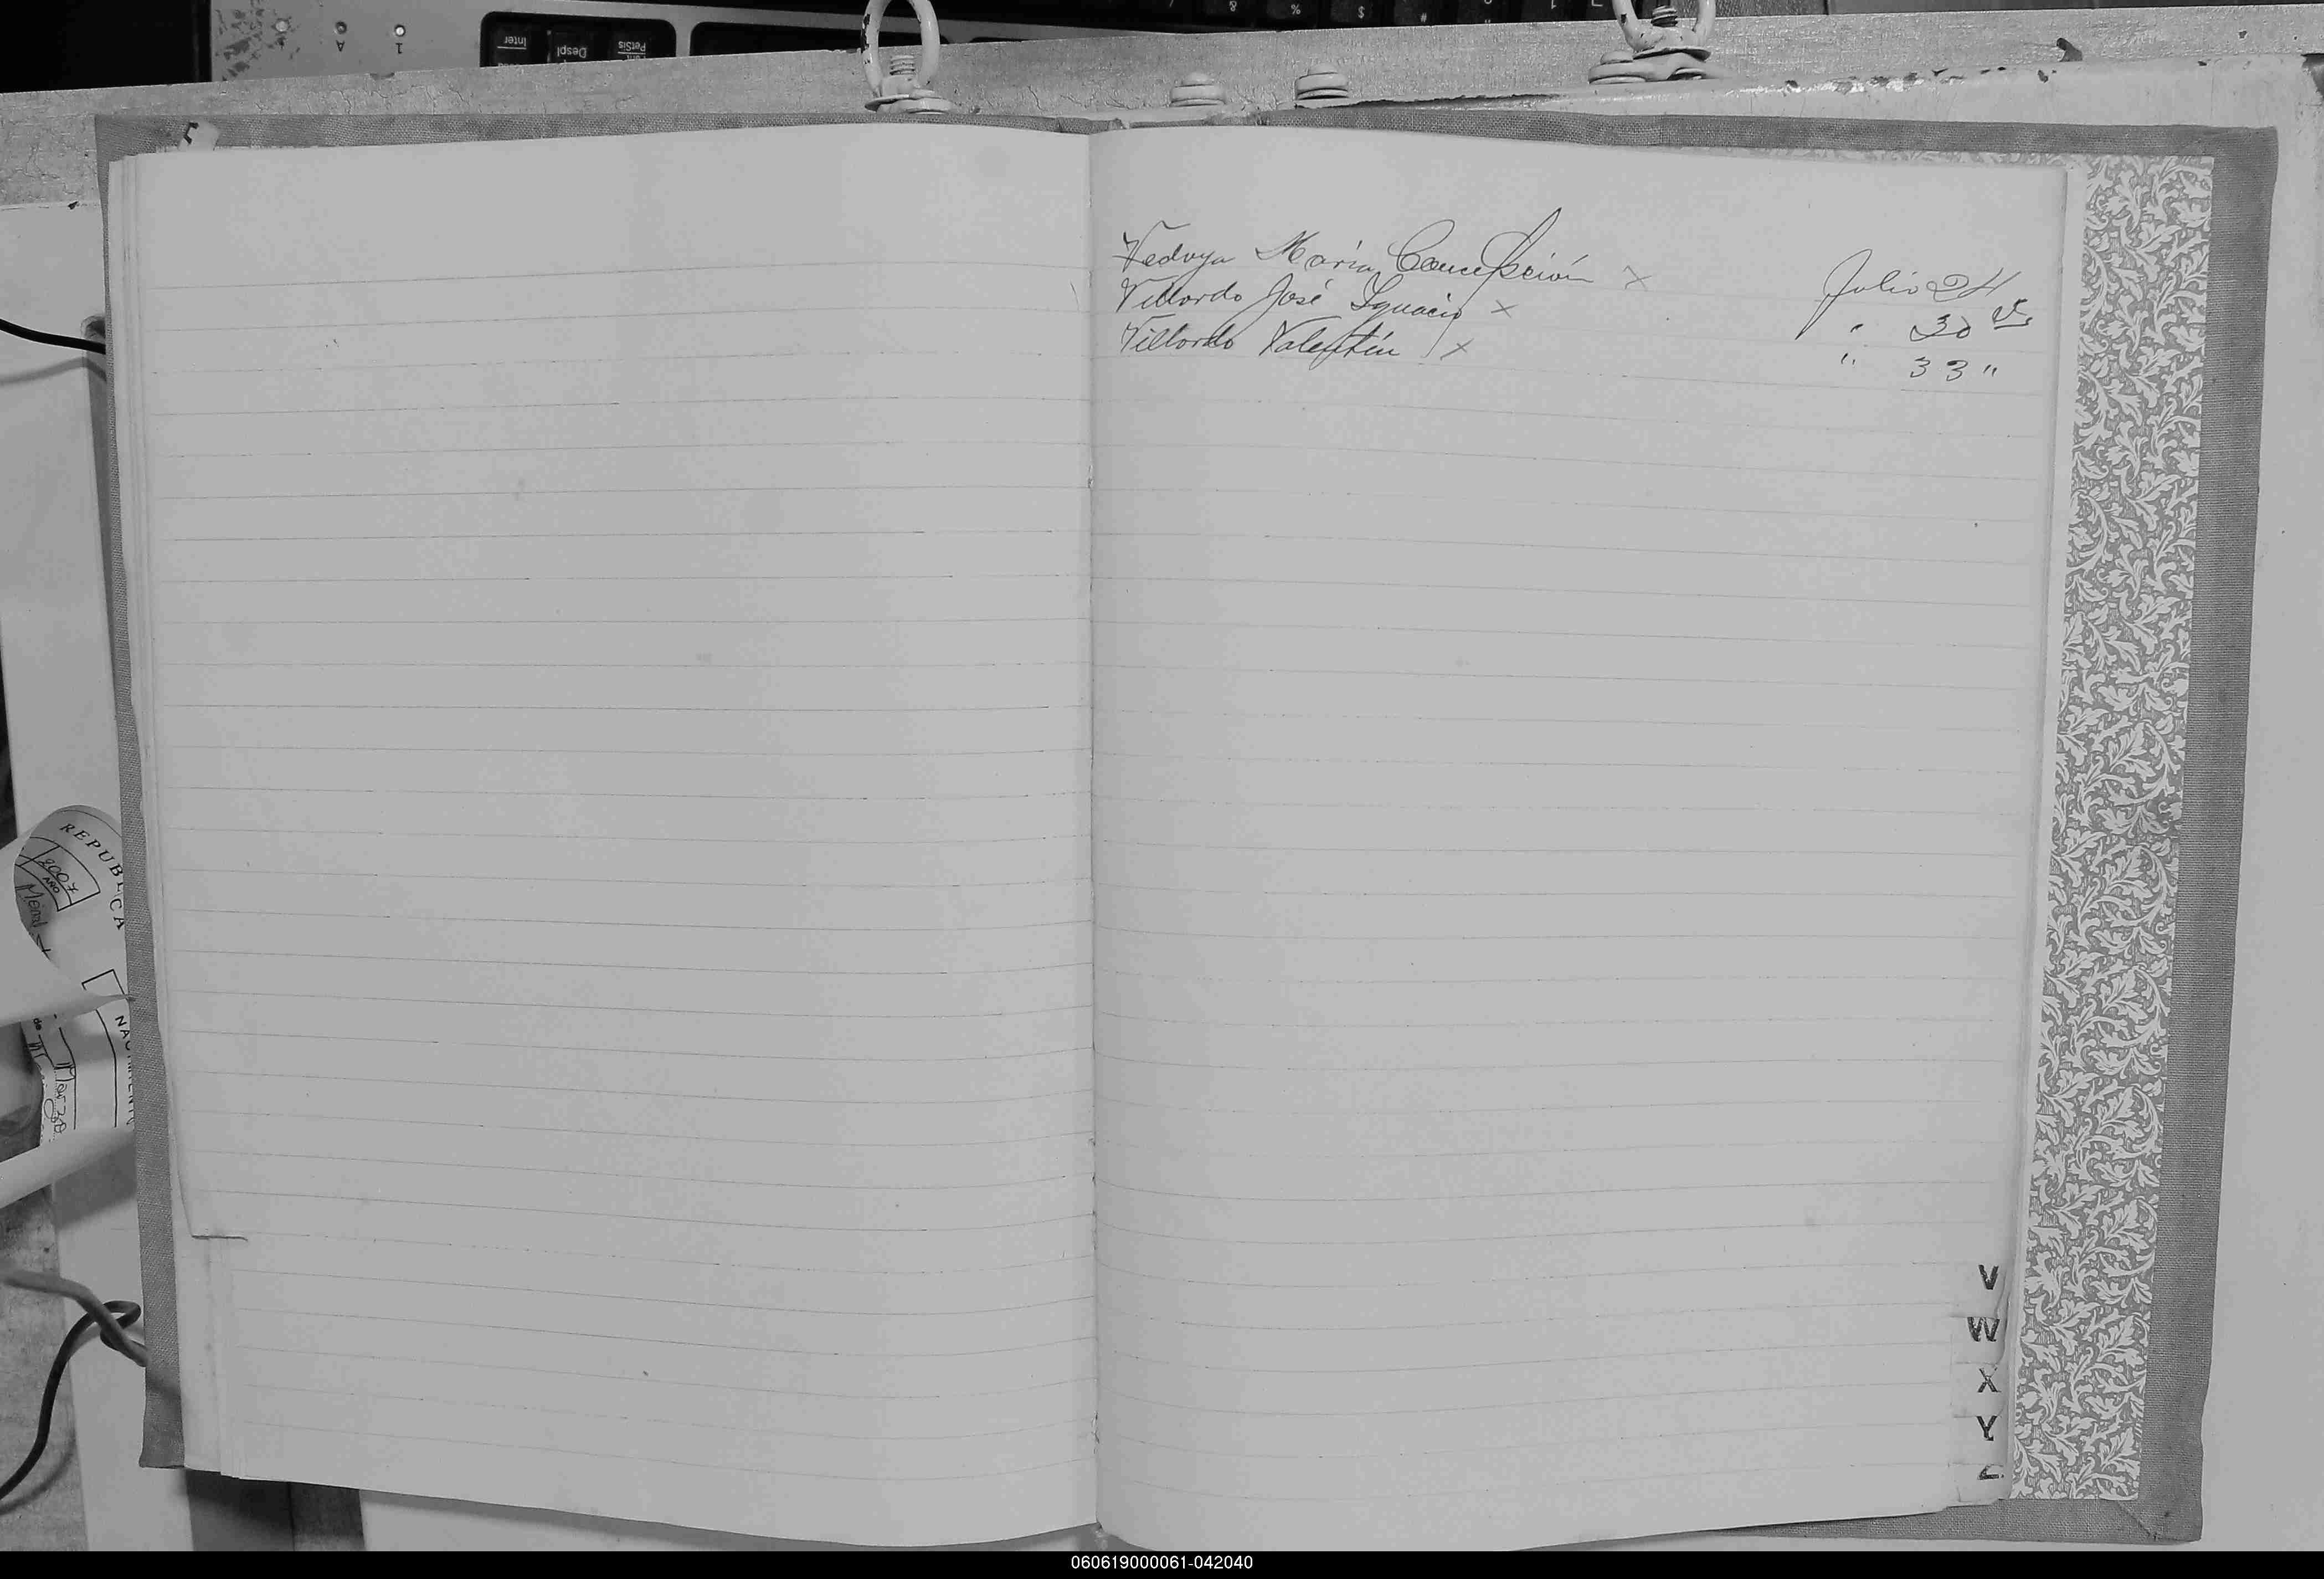 Vedoya María Concepción × Julio 24
Villordo José Ignacio × " 30 vta
Villordo Valentín × " 33 "
V
W
X
Y
REPUBLICA
2007
AÑO
Inter
Despl
PetSis
1
A
060619000061-042040